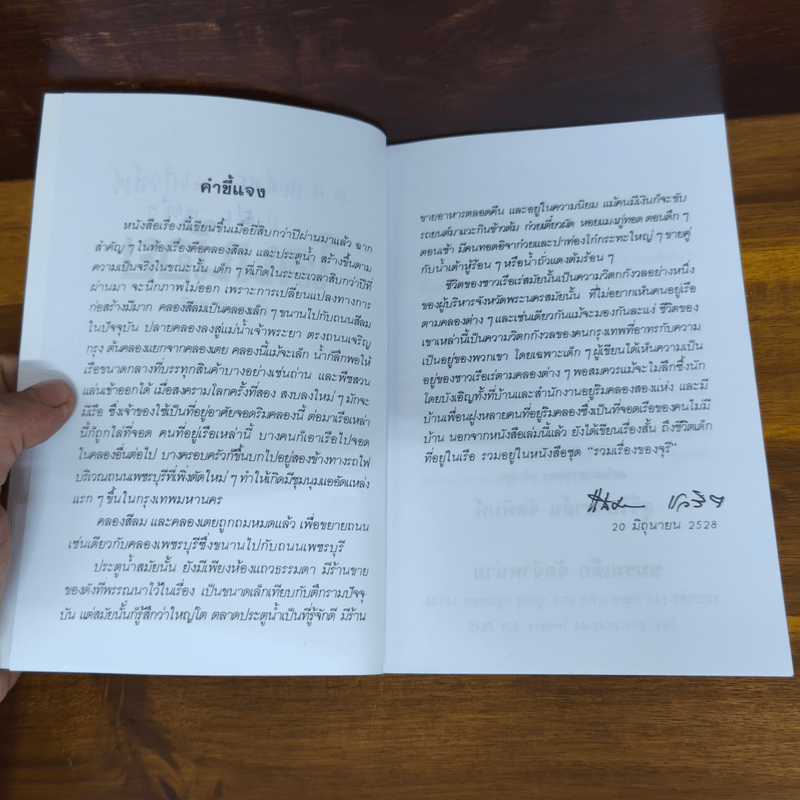 คำชี้แจง
หนังสือเรื่องนี้เขียนขึ้นเมื่อยี่สิบกว่าปีผ่านมาแล้ว ฉาก
สำคัญ ๆ ในท้องเรื่องคือคลองสีลม และประตูน้ำ สร้างขึ้นตาม
ความเป็นจริงในขณะนั้น เด็ก ๆ ที่เกิดในระยะเวลาสิบกว่าปีที่
ผ่านมา จะนึกภาพไม่ออก เพราะการเปลี่ยนแปลงทางการ
ก่อสร้างมีมาก คลองสีลมเป็นคลองเล็ก ๆ ขนานไปกับถนนสีลม
ในปัจจุบัน ปลายคลองลงสู่แม่น้ำเจ้าพระยา ตรงถนนเจริญ
กรุง ต้นคลองแยกจากคลองเตย คลองนี้แม้จะเล็ก น้ำก็ลึกพอให้
เรือขนาดกลางที่บรรทุกสินค้าบางอย่างเช่นถ่าน และพืชสวน
แล่นเข้าออกได้ เมื่อสงครามโลกครั้งที่สอง สงบลงใหม่ ๆ มักจะ
มีเรือ ซึ่งเจ้าของใช้เป็นที่อยู่อาศัยจอดริมคลองนี้ ต่อมาเรือเหล่า
นี้ก็ถูกไล่ที่จอด คนที่อยู่เรือเหล่านี้ บางคนก็เอาเรือไปจอด
ในคลองอื่นต่อไป บางครอบครัวก็ขึ้นบกไปอยู่สองข้างทางรถไฟ
บริเวณถนนเพชรบุรีที่เพิ่งตัดใหม่ ๆ ทำให้เกิดมีชุมนุมแออัดแหล่ง
แรก ๆ ขึ้นในกรุงเทพมหานคร
คลองสีลม และคลองเตยถูกถมหมดแล้ว เพื่อขยายถนน
เช่นเดียวกับคลองเพชรบุรีซึ่งขนานไปกับถนนเพชรบุรี
ประตูน้ำสมัยนั้น ยังมีเพียงห้องแถวธรรมดา มีร้านขาย
ของดังที่พรรณนาไว้ในเรื่อง เป็นขนาดเล็กเทียบกับตึกรามปัจจุ
บัน แต่สมัยนั้นก็รู้สึกว่าใหญ่โต ตลาดประตูน้ำเป็นที่รู้จักดี มีร้าน
ขายอาหารตลอดคืน และอยู่ในความนิยม แม้คนมีเงินก็จะขับ
รถยนต์มาแวะกินข้าวต้ม ก๋วยเตี๋ยวผัด หอยแมงภู่ทอด ตอนดึก ๆ
ตอนเช้า มีคนทอดอิจาก๋วยและปาท่องโก๋กระทะใหญ่ ๆ ขายคู่
กับน้ำเต้าหู้ร้อน ๆ หรือน้ำถั่วแดงต้มร้อน ๆ
ชีวิตของชาวเรือเร่สมัยนั้นเป็นความวิตกกังวลอย่างหนึ่ง
ของผู้บริหารจังหวัดพระนครสมัยนั้น ที่ไม่อยากเห็นคนอยู่เรือ
ตามคลองต่าง ๆ และเช่นเดียวกันแม้จะมองกันละแง่ ชีวิตของ
เขาเหล่านี้เป็นความวิตกกังวลของคนกรุงเทพที่อาทรกับความ
เป็นอยู่ของพวกเขา โดยเฉพาะเด็ก ๆ ผู้เขียนได้เห็นความเป็น
อยู่ของชาวเรือเร่ตามคลองต่าง ๆ พอสมควรแม้จะไม่ลึกซึ้งนัก
โดยบังเอิญทั้งที่บ้านและสำนักงานอยู่ริมคลองสองแห่ง และมี
บ้านเพื่อนฝูงหลายคนที่อยู่ริมคลองซึ่งเป็นที่จอดเรือของคนไม่มี
บ้าน นอกจากหนังสือเล่มนี้แล้ว ยังได้เขียนเรื่องสั้น ถึงชีวิตเด็ก
ที่อยู่ในเรือ รวมอยู่ในหนังสือชุด “รวมเรื่องของจุรี”
20 มิถุนายน 2528